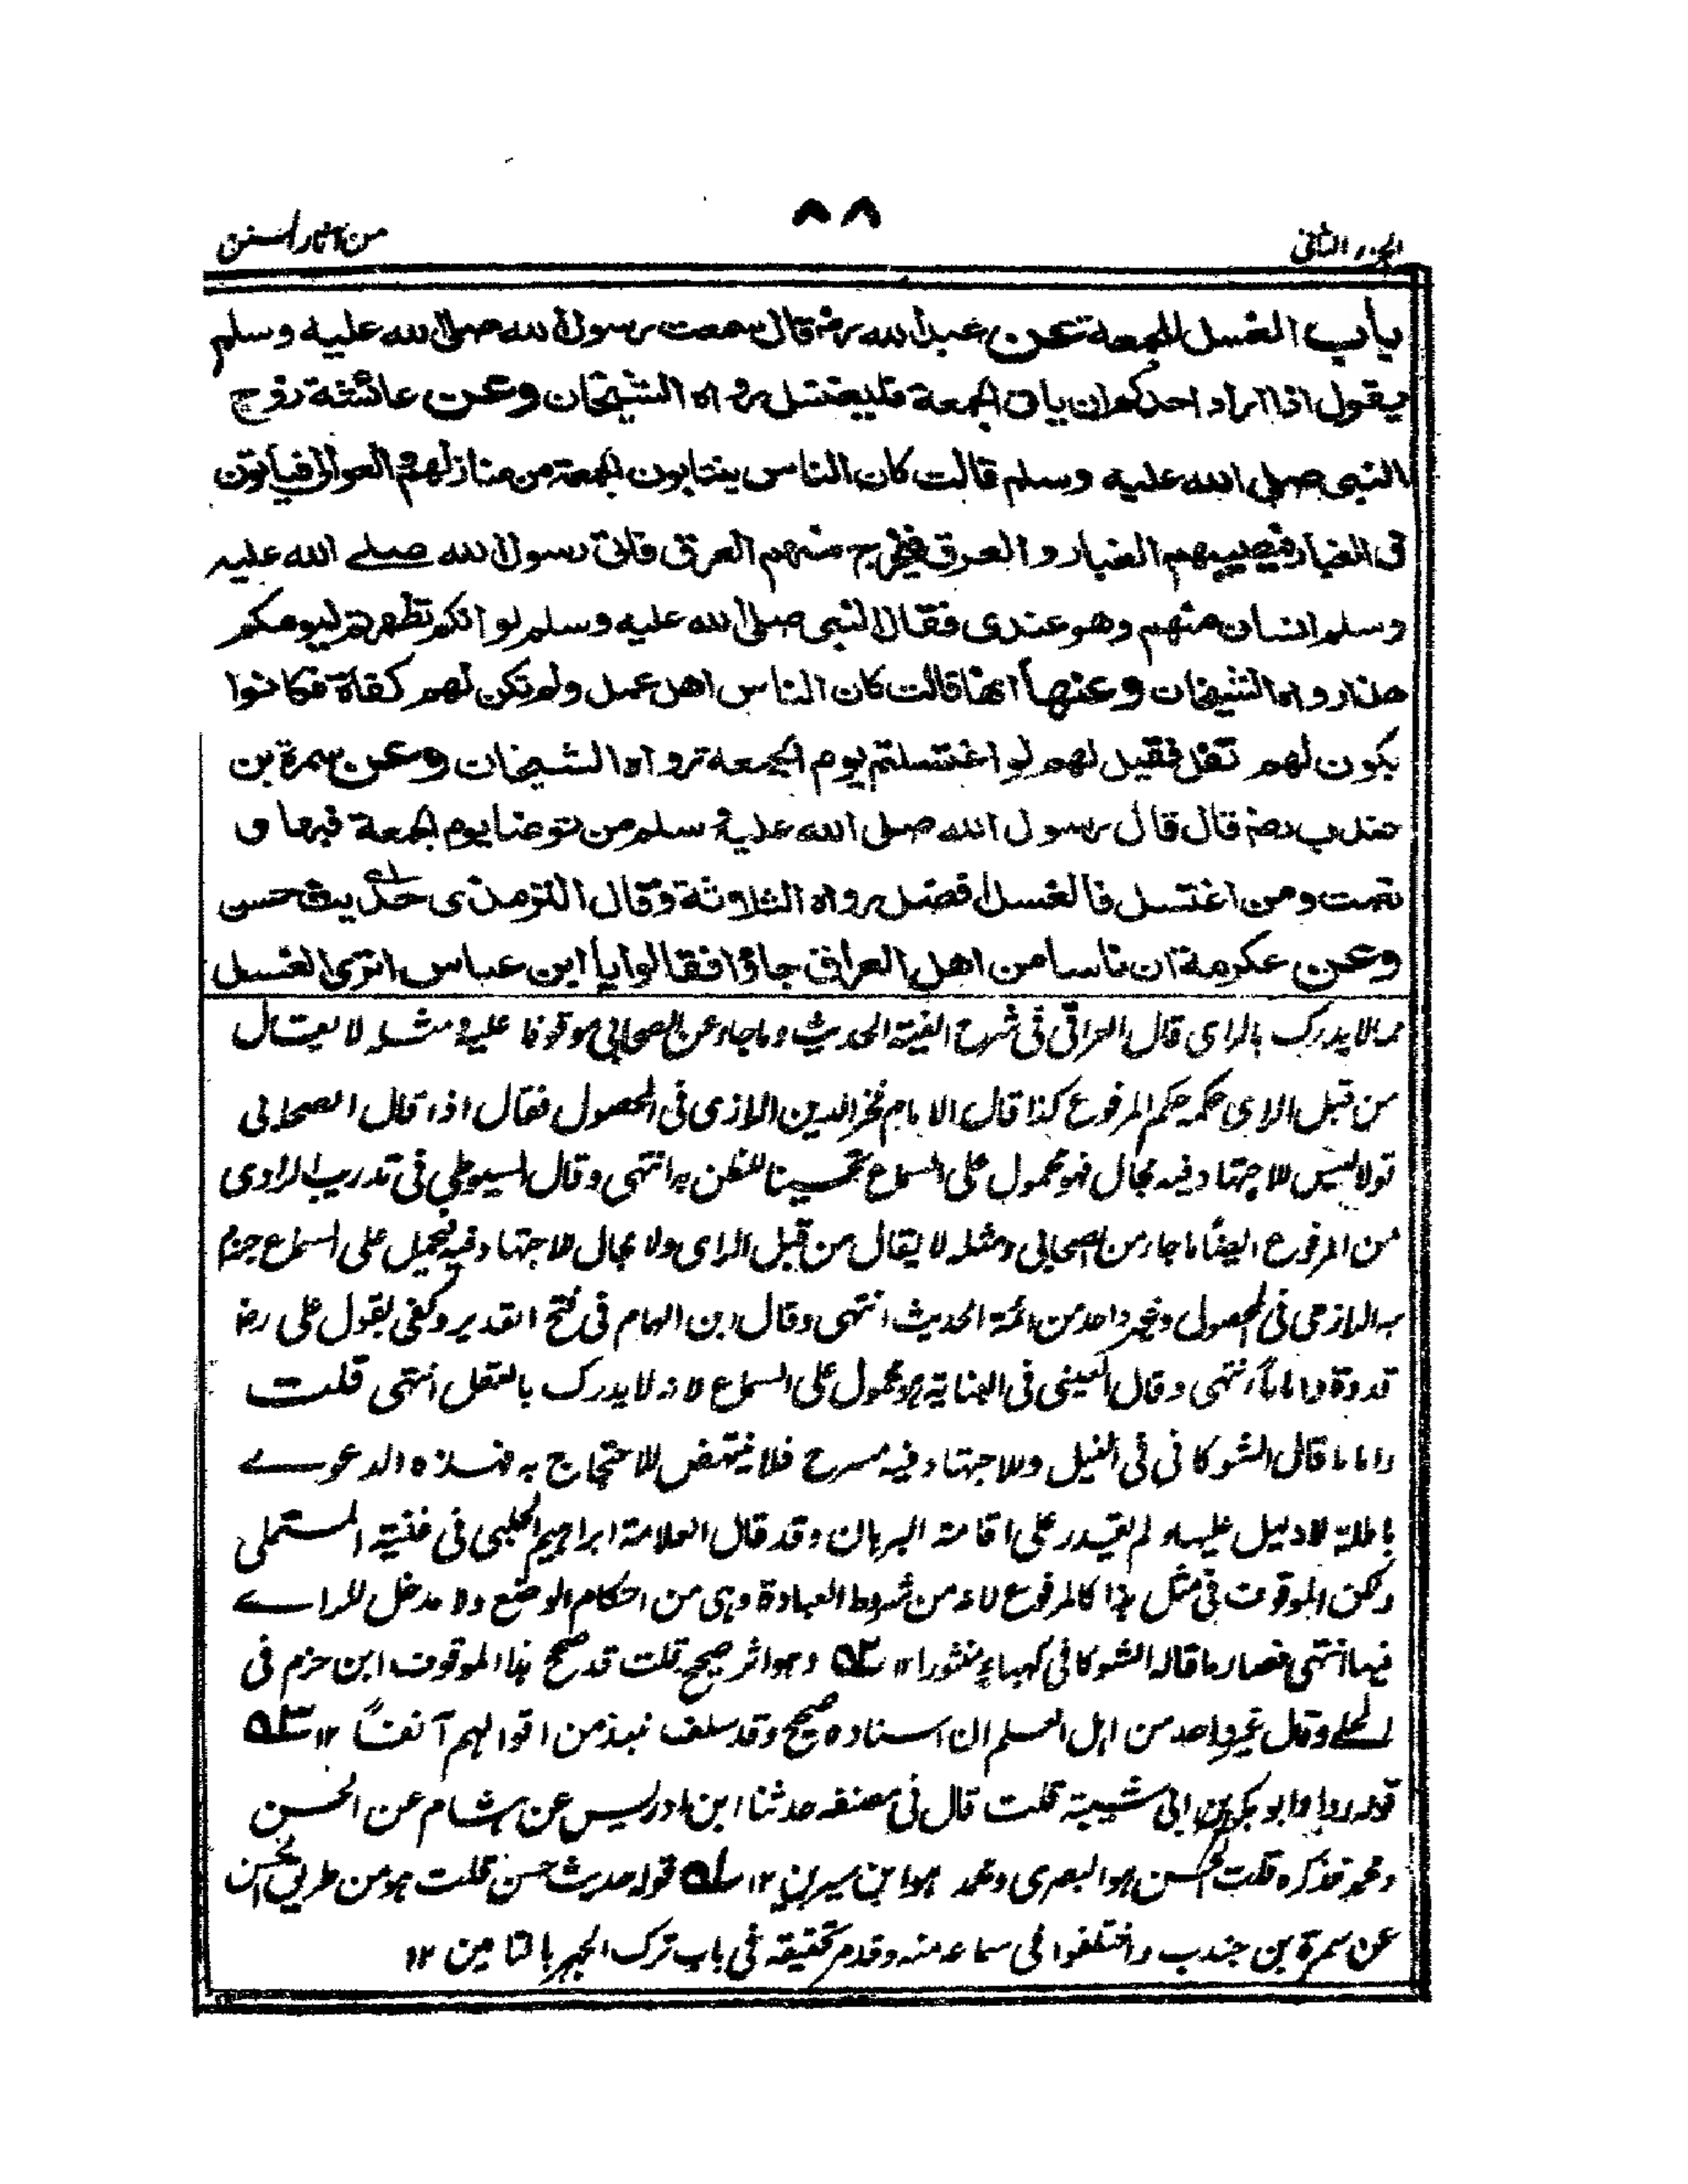 الجزء الثانی
٨٨
من آثار السنن
باب الغسل للجمعة عن عبد الله رض قال سمعت رسول الله صلى الله عليه وسلم
يقول اذا اراد احدكم ان ياتى الجمعة فليغتسل رواه الشيخان وعن عائشة زوج
النبى صلى الله عليه وسلم قالت كان الناس ينتابون الجمعة من منازلهم والعوالى فيأتون
فى الغبار فيصيبهم الغبار والعرق فيخرج منهم العرق فاتى رسول الله صلے الله عليه
وسلم انسان منهم وهو عندى فقال النبى صلى الله عليه وسلم لو انكم تطهرتم ليومكم
هذا رواه الشيخان وعنها انها قالت كان الناس اهل عمل ولم تكن لهم كفاة فكانوا
يكون لهم تفل فقيل لهم لو اغتسلتم يوم الجمعة رواه الشيخان وعن سمرة بن
جندب رض قال قال رسول الله صلى الله عليه وسلم من توضا يوم الجمعة فبها و
نعمت ومن اغتسل فالغسل افضل رواه الثلاثة وقال الترمذى حديث حسن
وعن عكرمة ان ناسا من اهل العراق جاؤا فقالوا يا ابن عباس اترى الغسل
مما لا يدرك بالرای قال العراقی فی شرح الفیة الحدیث وما جاء عن الصحابی موقوفا علیه ومثله لا یقال
من قبل الرای حكمه حكم المرفوع كذا قال الامام فخر الدین الرازی فی المحصول فقال اذا قال الصحابی
قولا لیس للاجتهاد فیه مجال فهو محمول علی السماع تحسینا للظن به انتهی وقال السیوطی فی تدریب الراوی
من المرفوع ایضًا ما جاء من الصحابی ومثله لا یقال من قبل الرای ولا مجال للاجتهاد فیه فیحمل علی السماع جزم
به الرازی فی المحصول وغیر واحد من ائمة الحدیث انتهی وقال ابن الهمام فی فتح القدیر وكفی بقول علی رض
قدوة واماماً انتهی وقال العینی فی البنایة هو محمول علی السماع لانه لا یدرك بالعقل انتهی قلت
واما ما قال الشوكانی فی النیل وللاجتهاد فیه مسرح فلا ینتهض للاحتجاج به فهذه الدعوے
باطلة لا دلیل علیها ولم یقدر علی اقامة البرهان وقد قال العلامة ابراهیم الحلبی فی غنیة المستملی
ولكن الموقوف فی مثل هذا كالمرفوع لانه من شروط العبادة وهی من احكام الوضع ولا مدخل للراے
فیها انتهی فصار ما قاله الشوكانی كهباء منثورا ١٢ ٥٣ وهو اثر صحیح قلت قد صحح هذا الموقوف ابن حزم فی
المحلے وقال غیر واحد من اهل العلم ان اسناده صحیح وقد سلف نبذ من اقوالهم آنفاً ١٢
قوله رواه ابو بكر بن ابی شیبة قلت قال فی مصنفه حدثنا ابن ادریس عن هشام عن الحسن
ومحمد فذكره قلت الحسن هو البصری ومحمد هو ابن سیرین ١٢ ٥١ قوله حدیث حسن قلت هو من طریق الحسن
عن سمرة بن جندب واختلفوا فی سماعه منه وقد مر تحقیقه فی باب ترك الجهر بالتامین ١٢